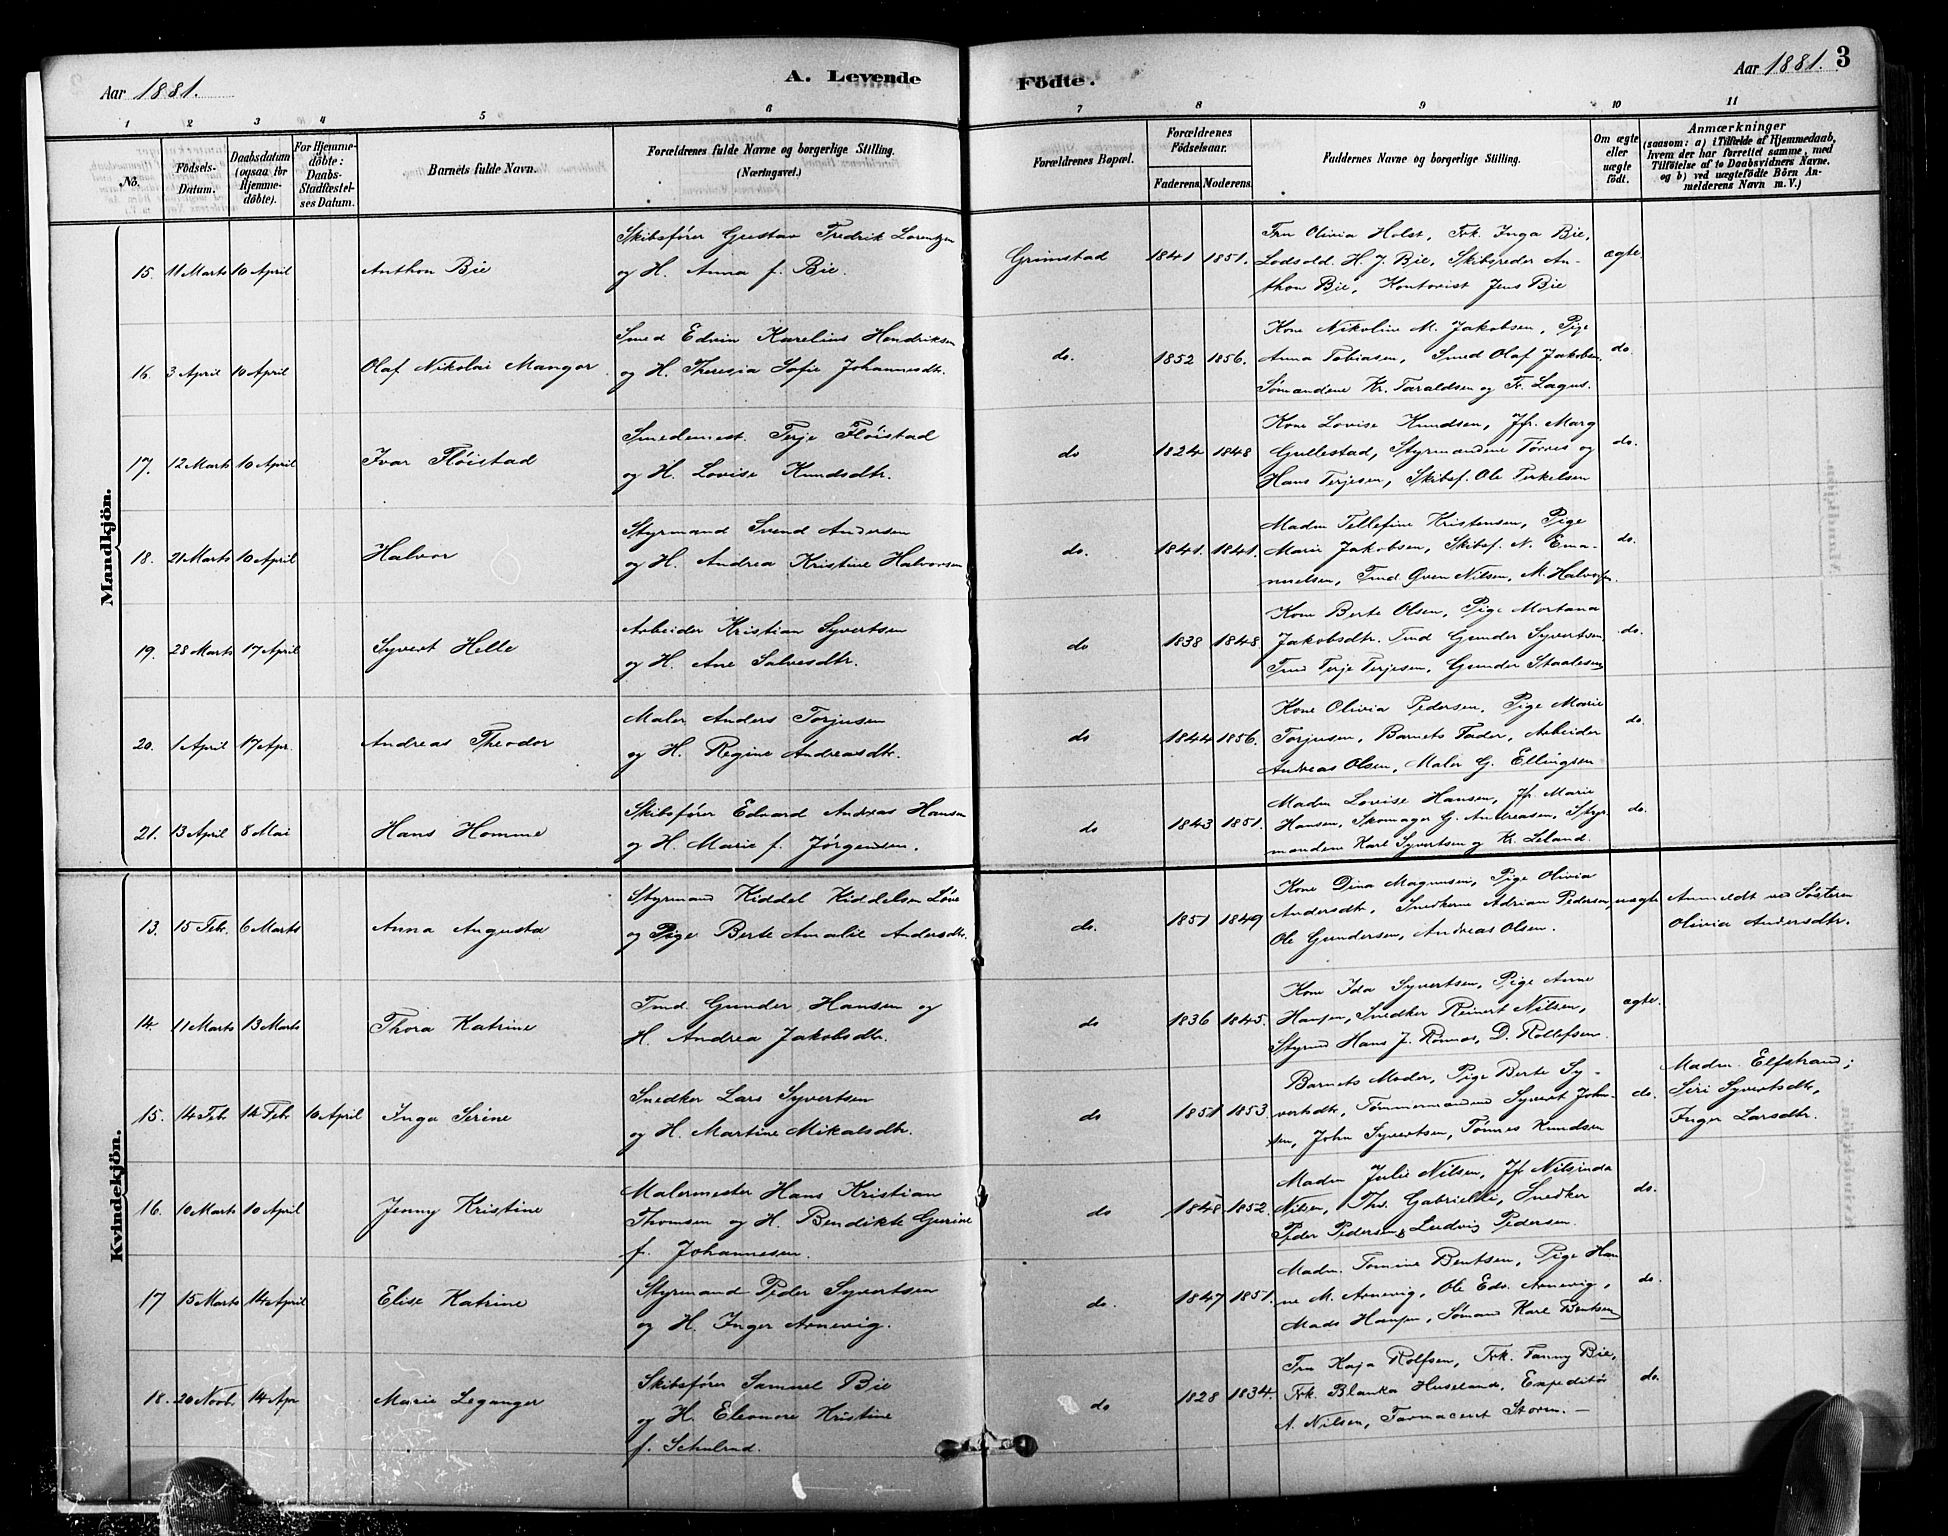 Aar 1881.
A. Levende Födte.
Aar 1881. 3
1 2 3 4 5 6 7 8 9 10 11
No.
Födsels-Datum.
Daabsdatum (ogsaa for Hjemmedöbte).
For Hjemmedöbte: Daabs-Stadfæstelses Datum.
Barnets fulde Navn.
Forældrenes fulde Navne og borgerlige Stilling. (Næringsvei.)
Forældrenes Bopæl.
Forældrenes Födselsaar.
Faderens. Moderens.
Faddernes Navne og borgerlige Stilling.
Om ægte eller uægte födt.
Anmærkninger
(saasom: a) i Tilfælde af Hjemmedaab, hvem der har forrettet samme, med Tilföielse af to Daabsvidners Navne, og b) ved uægtefödte Börn Anmelderens Navn m. V.)
Mandkjön.
15. 11 Marts 10 April Anthon Bie
Skibsfører Gustav Fredrik Lorentzen
og H. Anna f. Bie.
Grimstad 1841 1851.
Fru Olivia Holst, Frk. Inga Bie,
Lodsold. H. J. Bie, Skibsreder An-
thon Bie, Kontorist Jens Bie
ægte.
16. 3 April 10 April Olaf Nikolai Mangor
Smed Edvin Karelius Hendriksen
og H. Theresia Sofie Johannesdtr.
do. 1852 1856.
Kone Nikoline M. Jakobsen, Pige
Anna Tobiasen, Smed Olaf Jakobsen
Sømændene Kr. Taraldsen og Fr. Lagus.
do.
17. 12 Marts 10 April Ivar Fløistad
Smedemest. Terje Fløistad
og H. Lovise Knudsdtr.
do 1824 1848
Kone Lovise Knudsen, Jfr. Marg
Gullestad, Styrmændene Tørres og
Hans Terjesen, Skibsf. Ole Terkelsen
do.
18. 21 Marts 10 April Halvor
Styrmand Svend Andersen
og H. Andrea Kristine Halvorsen
do. 1841. 1841.
Madm Tellefine Kristensen, Pige
Marie Jakobsen, Skibsf. N. Ema-
nuelsen, Tmd. Gven Nilsen, M. Halvorsen.
do.
19. 28 Marts 17 April Syvert Helle
Arbeider Kristian Syvertsen
og H. Ane Salvesdtr.
do 1838 1848
Kone Berte Olsen, Pige Mortana
Jakobsdtr. Tmd Gunder Syvertsen
Tmd Terje Terjesen, Gunder Staalesen
do.
20. 1 April 17 Apr. Andreas Theodor
Maler Anders Torjusen
og H. Regine Andreasdtr.
do 1844 1856.
Kone Olivia Pedersen, Pige Marie
Torjusen, Barnets Fader, Arbeider
Andreas Olsen, Maler G. Ellingsen
do.
21. 13 April 8 Mai Hans Homme
Skibsfører Edvard Andreas Hansen
og H. Marie f. Jørgensen.
do 1843 1851.
Madm Lovise Hansen, Jfr. Marie
Hansen, Skomager G. Andreasen, Styr
mændene Karl Syvertsen og Kr. Leland.
do.
Kvindekjön.
13. 15 Feb. 6 Marts Anna Augusta
Styrmand Kiddel Kiddelsen Løve
og Pige Berte Amalie Andersdtr.
do. 1851 1849
Kone Dina Magnusen, Pige Olivia
Andersdtr, Snedkerne Adrian Pedersen,
Ole Gundersen, Andreas Olsen.
uægte
Anmeldt ved Søsteren
Olivia Andersdtr.
14. 11 Marts 13 Marts Thora Katrine
Tmd Gunder Hansen og
H. Andrea Jakobsdtr.
do 1836 1845.
Kone Ida Syvertsen, Pige Anne
Hansen, Snedker Reinert Nilsen,
Styrmd Hans J. Rønnes, D. Rollefsen.
ægte.
15. 14 Feb. 14 Feb. 10 April Inga Serine
Snedker Lars Syvertsen
og H. Martine Mikalsdtr.
do 1851 1853
Barnets Moder, Pige Berte Sy-
vertsdtr, Tømmermændene Syvert John-
sen, John Syvertsen, Tønnes Knudsen
do.
Madm. Elfstrand;
Siri Syvertsdtr,
Inger Larsdtr.
16. 10 Marts 10 April Jenny Kristine
Malermester Hans Kristian
Thomsen og H. Bendikte Gurine
f. Johannesen.
do 1848 1852.
Madm Julie Nilsen, Jfr Nilsinda
Nilsen, Ths. Gabrielli, Snedker
Peder Pedersen, Ludvig Pedersen.
do.
17 15 Marts 14 April Elise Katrine
Styrmand Peder Syvertsen
og H. Inger Arnevig.
do. 1847 1851.
Madm. Tomine Bentsen, Pige Han
ne M. Arnevig, Ole Edv. Arnevig,
Mads Hansen, Sømand Karl Bentsen
do.
18. 20 Novb. 14 Apr Marie Leganger
Skibsfører Samuel Bie
og H. Eleonore Kristine
f. Schulrud.
do 1828 1834.
Fru Kaja Rolfsen, Frk. Fanny Bie,
Frk. Blanka Huseland, Expeditør
A. Nilsen, Farmaceut Storm. —
do.